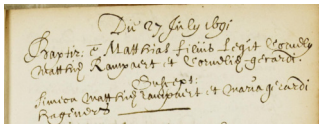 Die 27 July 1691
Baptiz. e Matthias filius Legit Cornelÿ
Matthiæ Rampaert et Cornelia gerardi.
Suscept:
Simeon Matthiæ Rampaert et Maria gerardi
Hageners